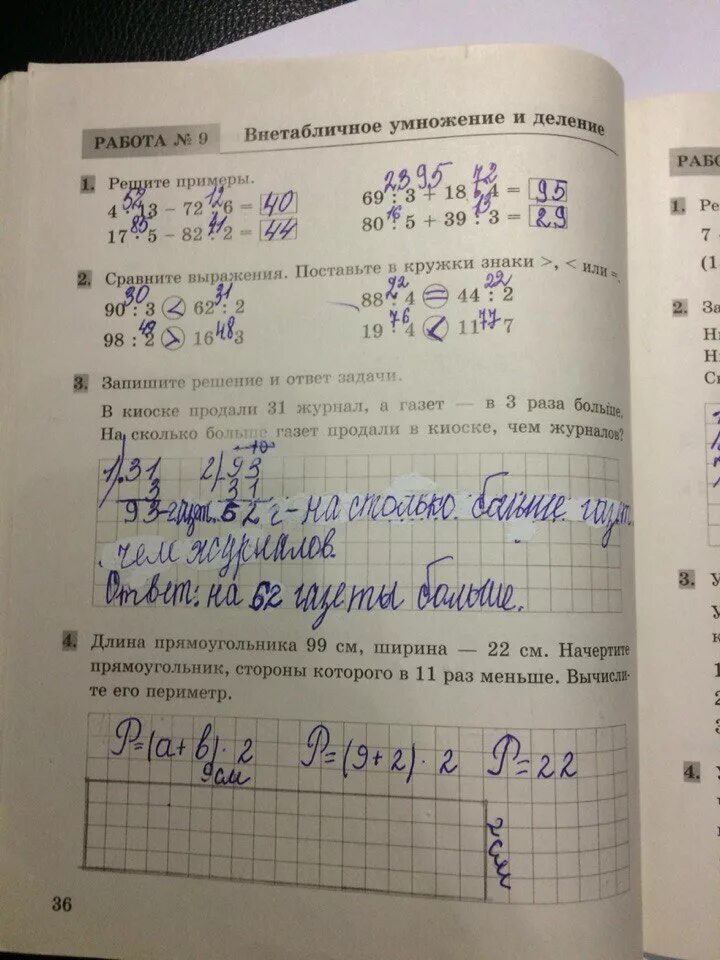 РАБОТА № 9 Внетабличное умножение и деление
1. Решите примеры.
52 12
4 · 13 − 72 : 6 = 40
23 95 72
69 : 3 + 18 · 4 = 95
85 41
17 · 5 − 82 : 2 = 44
16 13
80 : 5 + 39 : 3 = 29
2. Сравните выражения. Поставьте в кружки знаки >, < или =.
30 31
90 : 3 < 62 : 2
22 22
88 : 4 = 44 : 2
49 48
98 : 2 > 16 · 3
76 77
19 · 4 < 11 · 7
3. Запишите решение и ответ задачи.
В киоске продали 31 журнал, а газет — в 3 раза больше.
На сколько больше газет продали в киоске, чем журналов?
10
1) 31 2) 93
3 31
93-газт. 62 г-на столько больше газет
чем журналов.
Ответ: на 62 газеты больше.
4. Длина прямоугольника 99 см, ширина — 22 см. Начертите
прямоугольник, стороны которого в 11 раз меньше. Вычисли-
те его периметр.
P=(a+b)·2 P=(9+2)·2 P=22
9см
2см
36
РАБО
1. Ре
7
(1
2. За
Н
Н
Ск
3. У
у
к
1
2
3
4.